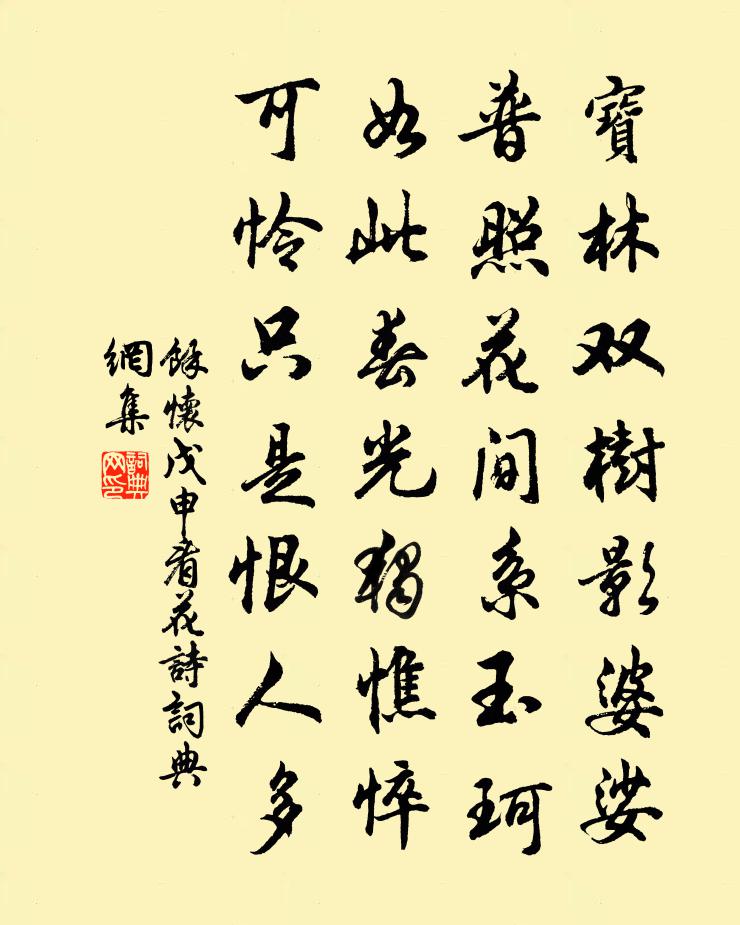 寶林双樹影婆娑
普照花间系玉珂
如此春光獨憔悴
可怜只是恨人多
餘懷戊申看花詩詞典
網集
詞典網印